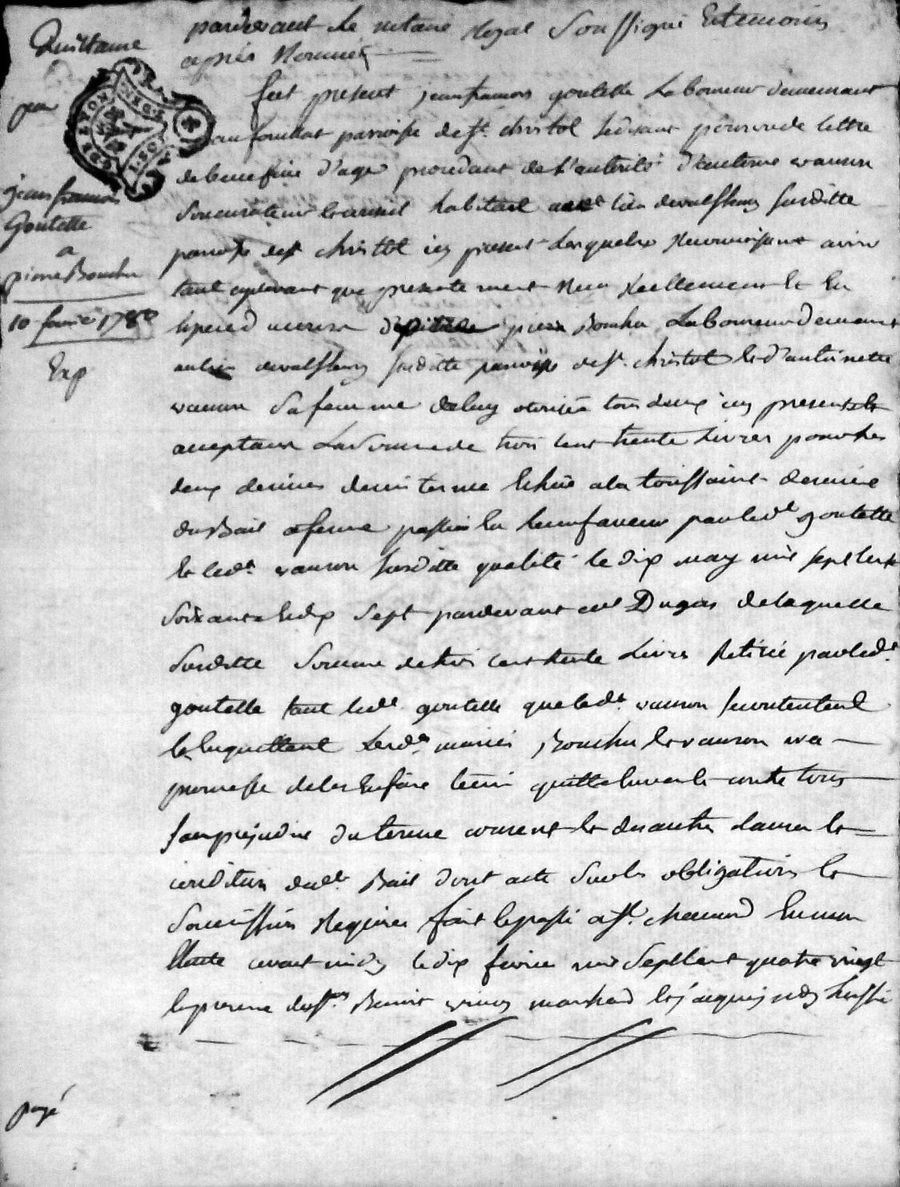 Quittance
par
jean francois
Goutelle
a
pierre Bouchu
10 fevrier 1780
Exp
GEN. DE LYON
DEUX SOLS
pardevant Le notaire Royal Soussigné Et temoins
apres Nommés
fut present jean francois goutelle Laboureur demeurant
au parroisse de st. christol pourvu de lettre
de benefice d'age procedant de L'autorité d'antoine vanron
Son curateur habitant lieu susditte
parroisse de st christol icy present Lesquels Reconnoissent avoir
tant cydevant que presentement Recu Reellement Et En
de pierre Bouchu Laboureur demeurant
susditte parroisse de st. christol Et d'antoinette
vanron Sa femme de luy tous deux icy presents Et
acceptans La Somme de trois cent trente Livres pour les
deux derniers terme Echus a la toussaint derniere
du Bail a ferme passé En leur faveur par led. goutelle
Et led. vanron susditte qualité le dix may mil sept cent
Soixante Et dix Sept pardevant me Dugas de laquelle
Susditte Somme de trois cent trente Livres Retirée par led.
goutelle tant led. goutelle que led. vanron se contentent
Et En quittent lesd. mariés Bouchu Et vanron avec
promesse de les En faire tenir quitte Envers Et contre tous
Sans prejudice du terme courant Et des autres clauses Et
conditions dud. Bail dont acte Sous les obligations Et
Soumissions Requises fait Et passé a st. chamond En mon
Etude avant midy le dix fevrier mil Sept Cent quatre vingt
En presence de srs. Benoit marchand Et jacques huissier
payé